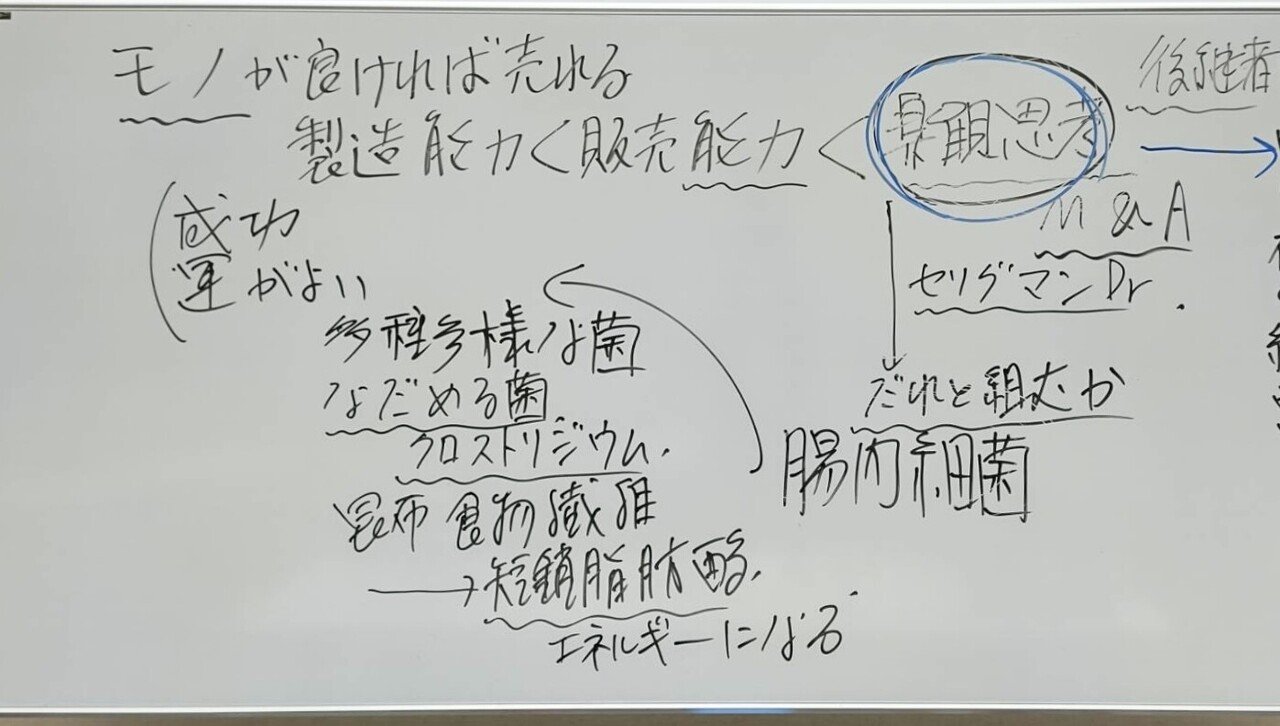 モノが良ければ売れる
製造能力く販売能力く
思考
後継者
M&A
セリグマンDr.
だれと組むか
成功
運がよい
多種多様な菌
なだめる菌
クロストリジウム.
昆布 食物繊維
→短鎖脂肪酸.
エネルギーになる
腸内細菌